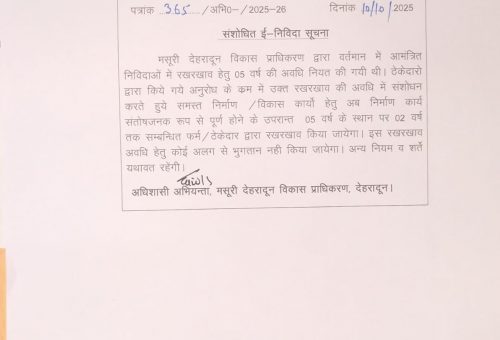 पत्रांक 365 /अभि0-/2025-26 दिनांक 10/10/2025
संशोधित ई-निविदा सूचना
मसूरी देहरादून विकास प्राधिकरण द्वारा वर्तमान में आमंत्रित
निविदाओं में रखरखाव हेतु 05 वर्ष की अवधि नियत की गयी थी। ठेकेदारो
द्वारा किये गये अनुरोध के क्रम में उक्त रखरखाव की अवधि में संशोधन
करते हुये समस्त निर्माण /विकास कार्यो हेतु अब निर्माण कार्य
संतोषजनक रूप से पूर्ण होने के उपरान्त 05 वर्ष के स्थान पर 02 वर्ष
तक सम्बन्धित फर्म/ठेकेदार द्वारा रखरखाव किया जायेगा। इस रखरखाव
अवधि हेतु कोई अलग से भुगतान नही किया जायेगा। अन्य नियम व शर्ते
यथावत रहेंगी।
अधिशासी अभियन्ता, मसूरी देहरादून विकास प्राधिकरण, देहरादून।